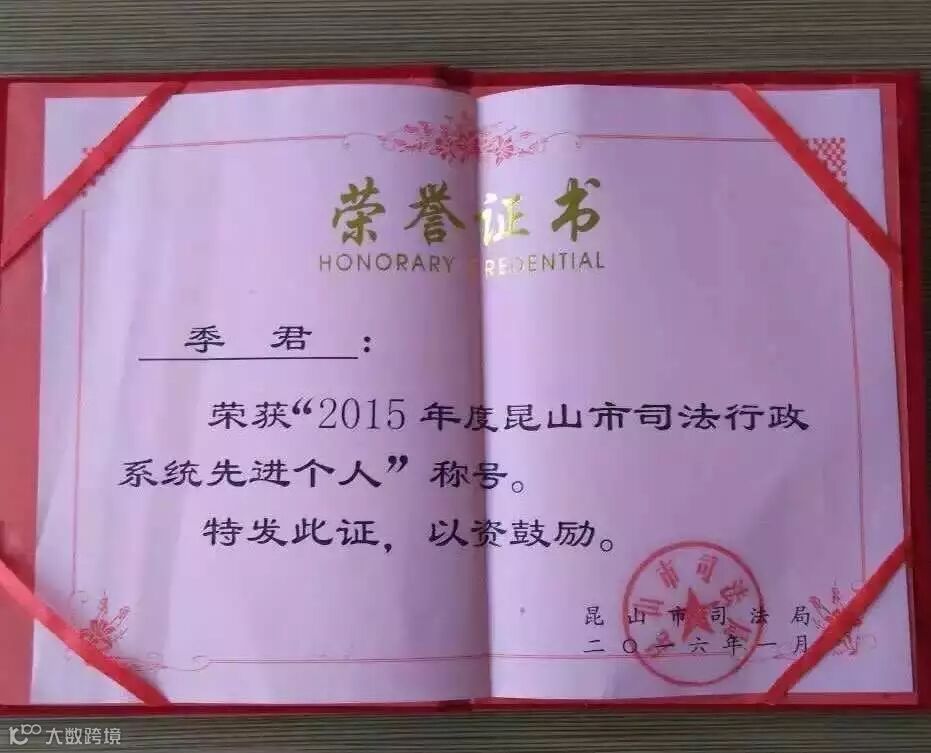 荣誉证书
HONORARY CREDENTIAL
季君：
荣获“2015年度昆山市司法行政
系统先进个人”称号。
特发此证，以资鼓励。
昆山市司法局
昆山市司法局
二〇一六年一月
大数跨境